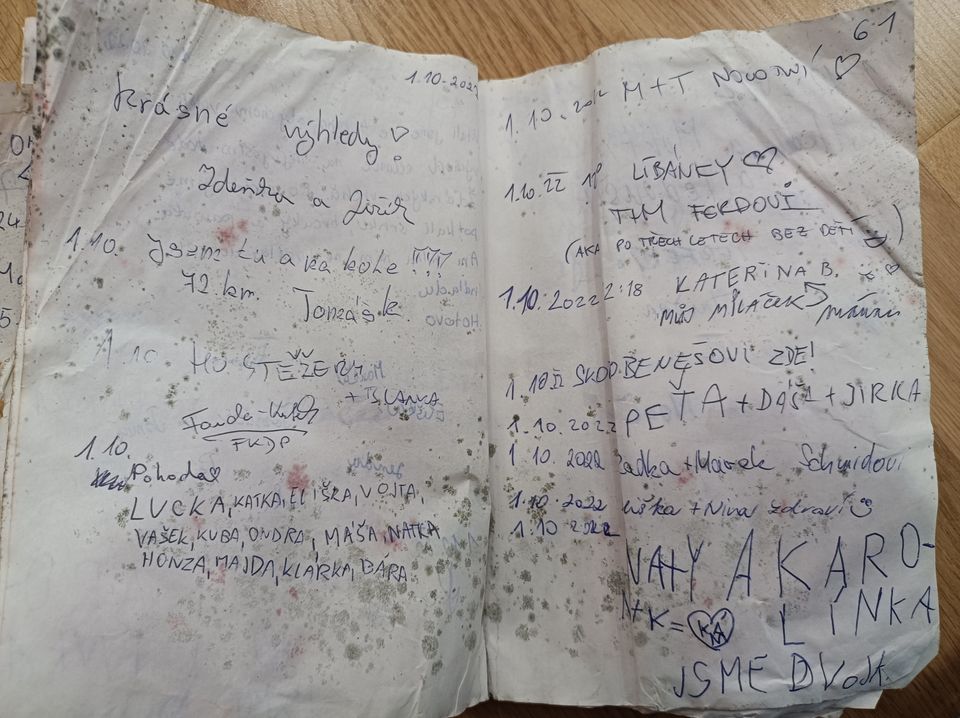 1.10.2022
Krásné
výhledy ♡
Zdeňka a Jiřík
1.10. Jsem tu a na kole !!!
72 km. Tomášk.
1.10 HO STĚŽERY
+ TSLANKA
FKDP
1.10.
Pohoda
LUCKA, KATKA, ELIŠKA, VOJTA,
VAŠEK, KUBA, ONDRA, MÁŠA, NATKA
HONZA, MAJDA, KLÁRKA, BÁRA
6.1
1.10.2022 M+T NOVOTNÍ ♡
1.10.22 LÍBÁNKY ♡
T+M FORDOVI
(AKA PO TŘECH LETECH BEZ DĚTÍ)
1.10.2022 2:18 KATEŘINA B. ♡
MŮJ MILÁČEK
1.10 BENEŠOVI ZDE!
1.10.2022 PEŤA + DÁŠA + JIRKA
1.10 2022 Radka + Marek Schmidovi
1.10 2022 Eliška + Nina zdraví
1.10 2022
NATY A KARO-
LÍNKA
N+K = KÁ
JSME DVOJK.